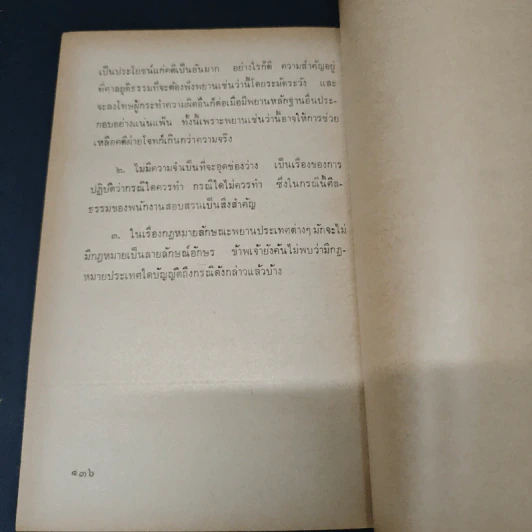 เป็นประโยชน์แก่คดีเป็นอันมาก อย่างไรก็ดี ความสำคัญอยู่
ที่ศาลยุติธรรมที่จะต้องฟังพยานเช่นว่านี้โดยระมัดระวัง และ
จะลงโทษผู้กระทำความผิดอื่นก็ต่อเมื่อมีพยานหลักฐานอื่นประ-
กอบอย่างแน่นแฟ้น ทั้งนี้เพราะพยานเช่นว่านี้อาจให้การช่วย
เหลือคดีฝ่ายโจทก์เกินกว่าความจริง
๒. ไม่มีความจำเป็นที่จะอุดช่องว่าง เป็นเรื่องของการ
ปฏิบัติว่ากรณีใดควรทำ กรณีใดไม่ควรทำ ซึ่งในกรณีนี้ศีล-
ธรรมของพนักงานสอบสวนเป็นสิ่งสำคัญ
๓. ในเรื่องกฎหมายลักษณะพยานประเทศต่างๆ มักจะไม่
มีกฎหมายเป็นลายลักษณ์อักษร ข้าพเจ้ายังค้นไม่พบว่ามีกฎ-
หมายประเทศใดบัญญัติถึงกรณีดังกล่าวแล้วบ้าง
๑๓๖